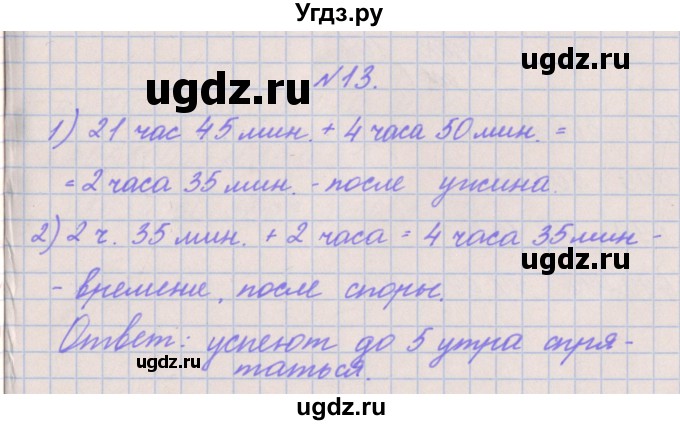 Угдз.ру
ugdz.ru
ugdz.ru
№13.
1) 21 час 45 мин. + 4 часа 50 мин. =
= 2 часа 35 мин. - после ужина.
ugdz.ru
2) 2 ч. 35 мин. + 2 часа = 4 часа 35 мин -
- времени, после споры.
Ответ: успеют до 5 утра спря-
ugdz.ru
таться.
ugdz.ru